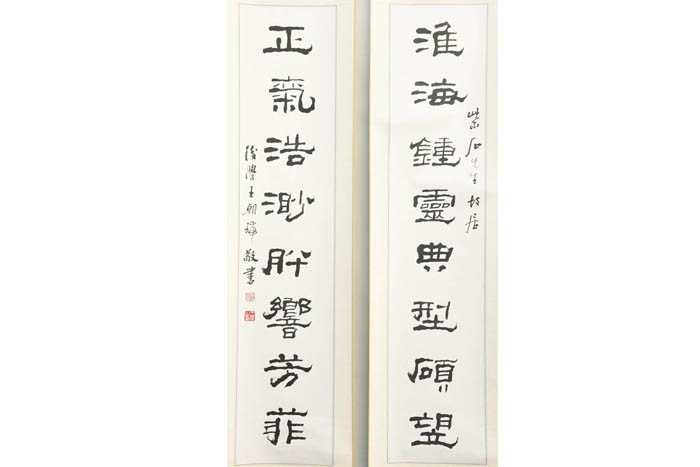 紫石先生故居
淮海鍾靈典型碩望
正氣浩渺肸響芳菲
後學王朝瑞敬書